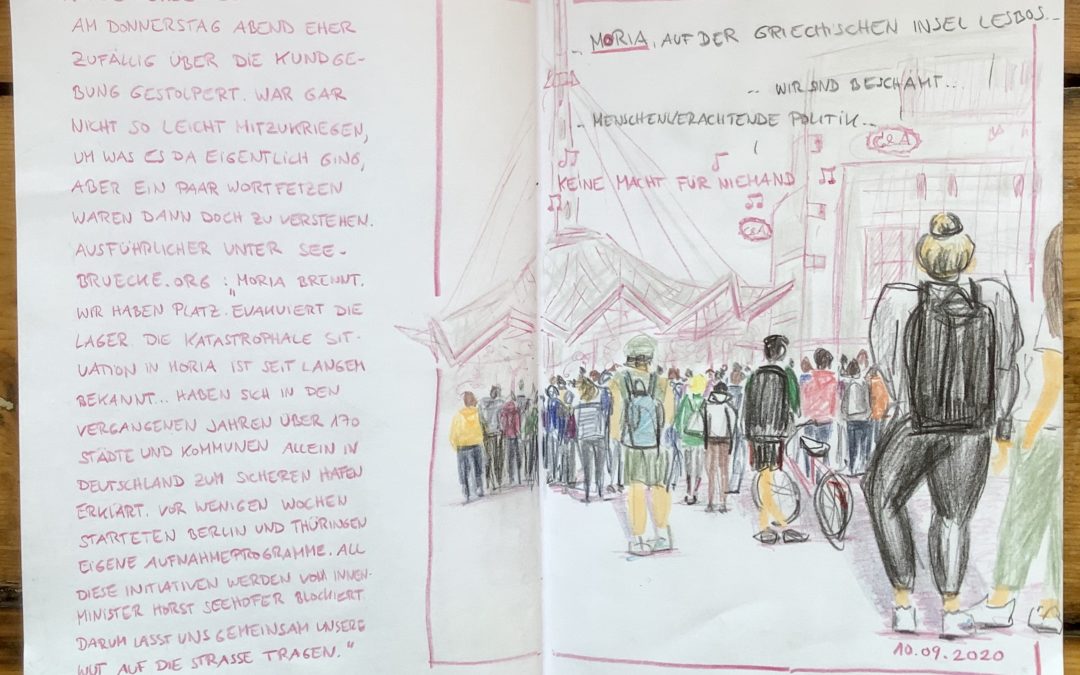 AM DONNERSTAG ABEND EHER
ZUFÄLLIG ÜBER DIE KUNDGE-
BUNG GESTOLPERT. WAR GAR
NICHT SO LEICHT MITZUKRIEGEN,
UM WAS ES DA EIGENTLICH GING,
ABER EIN PAAR WORTFETZEN
WAREN DANN DOCH ZU VERSTEHEN.
AUSFÜHRLICHER UNTER SEE-
BRUECKE.ORG : „MORIA BRENNT.
WIR HABEN PLATZ. EVAKUIERT DIE
LAGER. DIE KATASTROPHALE SIT-
UATION IN MORIA IST SEIT LANGEM
BEKANNT... HABEN SICH IN DEN
VERGANGENEN JAHREN ÜBER 170
STÄDTE UND KOMMUNEN ALLEIN IN
DEUTSCHLAND ZUM SICHEREN HAFEN
ERKLÄRT. VOR WENIGEN WOCHEN
STARTETEN BERLIN UND THÜRINGEN
EIGENE AUFNAHMEPROGRAMME. ALL
DIESE INITIATIVEN WERDEN VOM INNEN-
MINISTER HORST SEEHOFER BLOCKIERT.
DARUM LASST UNS GEMEINSAM UNSERE
WUT AUF DIE STRASSE TRAGEN."
.. MORIA, AUF DER GRIECHISCHEN INSEL LESBOS...
.. WIR SIND BESCHÄMT...
.. MENSCHENVERACHTENDE POLITIK...
C&A
KEINE MACHT FÜR NIEMAND
C&A
10.09.2020